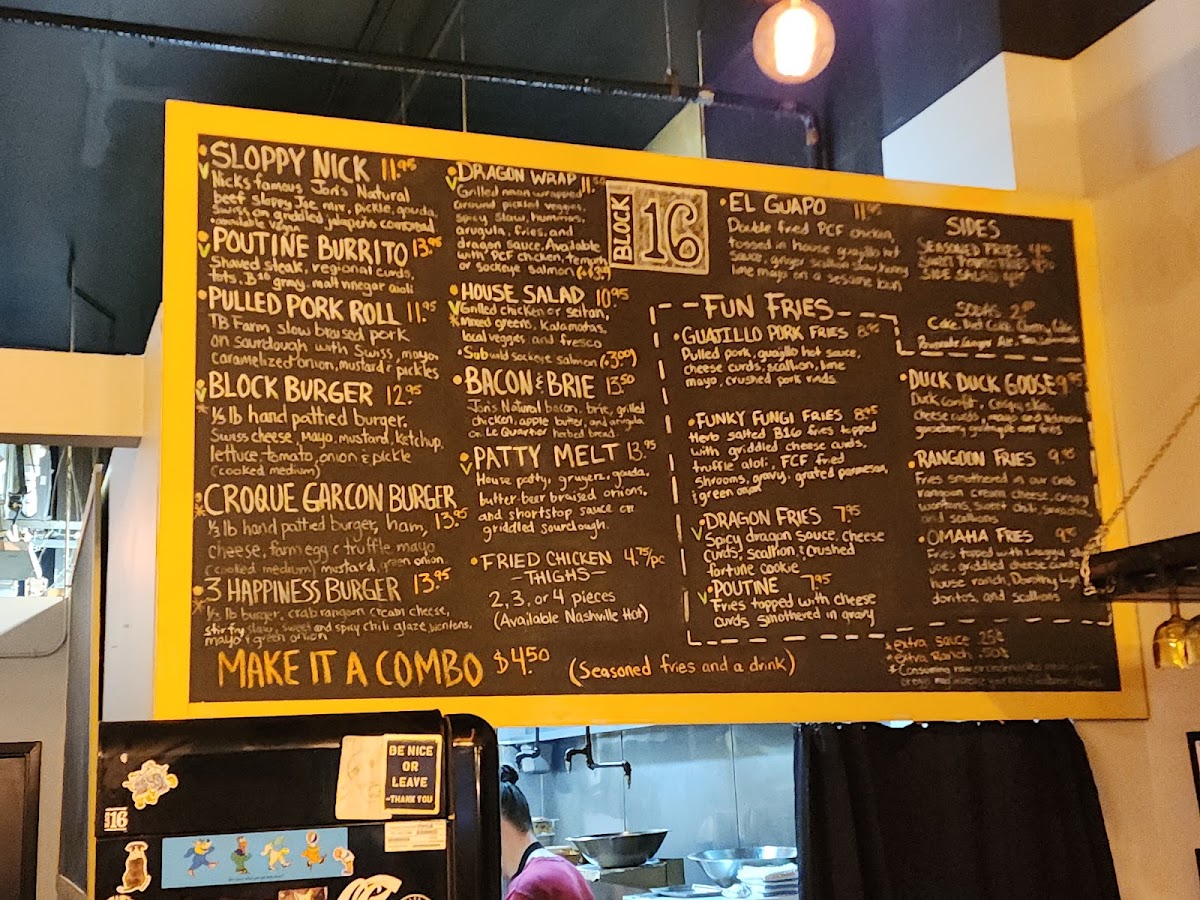 SLOPPY NICK 11.95
Nicks famous Jon's Natural
beef sloppy Joe mix, pickle, gouda,
swiss on griddled jalapeño cornbread
POUTINE BURRITO 13.95
Shaved steak, regional curds,
tots, B16 gravy, malt vinegar aioli
PULLED PORK ROLL 11.95
TB Farm slow braised pork
on sourdough with Swiss, mayo,
caramelized onion, mustard & pickles
BLOCK BURGER 12.95
* 1/3 lb hand pattied burger,
Swiss cheese, Mayo, mustard, Ketchup,
lettuce, tomato, onion & pickle
(cooked medium)
CROQUE GARCON BURGER
* 1/3 lb hand pattied burger, ham, 13.95
cheese, farm egg & truffle mayo
(cooked medium) mustard, green onion
3 HAPPINESS BURGER 13.95
* 1/3 lb burger, crab rangoon cream cheese,
stir fry slaw, sweet and spicy chili glaze, wontons,
mayo, green onion
MAKE IT A COMBO $4.50 (Seasoned fries and a drink)
DRAGON WRAP 11.50
Grilled naan wrapped
around pickled veggies,
spicy slaw, hummus,
arugula, fries, and
dragon sauce. Available
with PCF chicken, tempeh,
or sockeye salmon
HOUSE SALAD 10.95
Grilled chicken or seitan,
* Mixed greens, Kalamatas,
local veggies and fresco
• Sub wild sockeye salmon (+3.00)
BACON & BRIE 13.50
Jon's Natural bacon, brie, grilled
chicken, apple butter, and arugula
on Le Quartier herbed bread
PATTY MELT 13.95
House patty, gruyere, gouda,
butter-beer braised onions,
and shortstop sauce on
griddled sourdough.
FRIED CHICKEN 4.75/pc
-THIGHS-
2, 3, or 4 pieces
(Available Nashville Hot)
BLOCK 16
EL GUAPO 11.95
Double fried PCF chicken,
tossed in house guajillo hot
sauce, ginger scallion slaw, honey
lime mayo on a sesame bun
FUN FRIES
GUAJILLO PORK FRIES 8.95
Pulled pork, guajillo hot sauce,
cheese curds, scallion, lime
mayo, crushed pork rinds.
FUNKY FUNGI FRIES 8.95
Herb salted B16 fries topped
with griddled cheese curds,
truffle aioli, FCF fried
shrooms, gravy, grated parmesan,
& green onion
DRAGON FRIES 7.95
Spicy dragon sauce, cheese
curds, scallion & crushed
fortune cookie
POUTINE 7.95
Fries topped with cheese
curds smothered in gravy
SIDES
SEASONED FRIES
SWEET POTATO FRIES
SIDE SALAD
SODAS
Coke, Diet Coke, Cherry Coke,
Ginger Ale, Tea, Lemonade
DUCK DUCK GOOSE 9.95
Duck confit, crispy skin,
cheese curds,
gooseberry
RANGOON FRIES 9.95
Fries smothered in our crab
rangoon cream cheese, crispy
wontons, sweet chili, sriracha,
and scallions
OMAHA FRIES 9.50
Fries topped with
joe, griddled cheese curds,
house ranch, Dorothy Lynch,
doritos, and scallions
* extra sauce 25¢
* extra Ranch .50¢
* Consuming raw or undercooked
BE NICE
OR
LEAVE
-THANK YOU
16